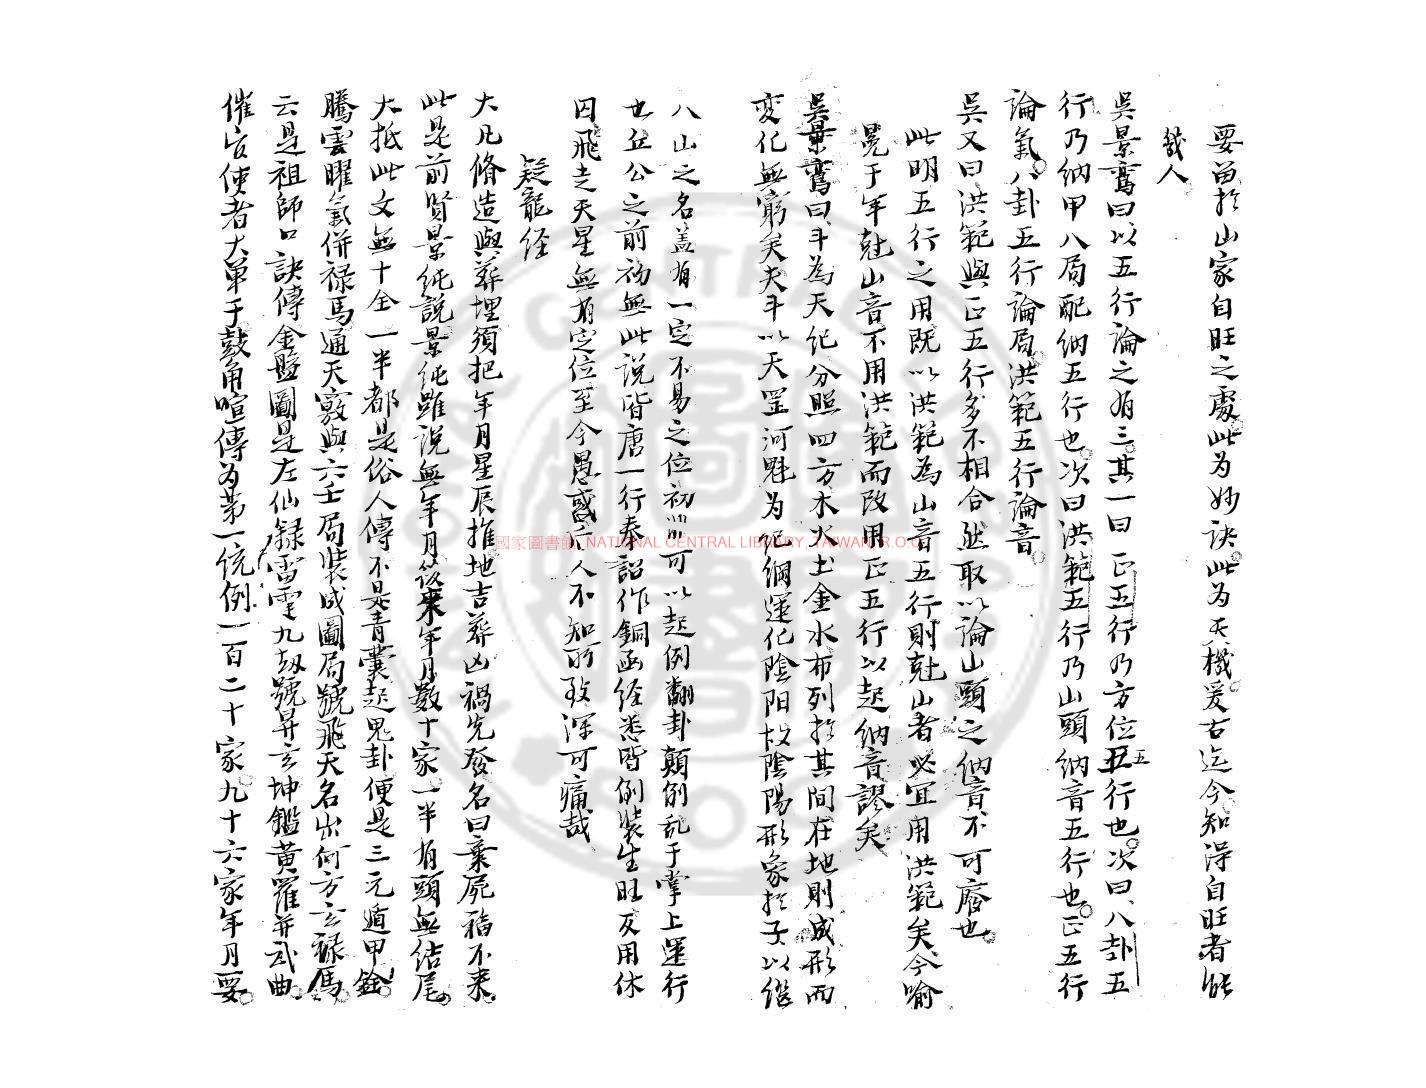 要畄扵山家自旺之處此为妙訣此为天機爰古迄今知淂自旺者能
幾人
吳景鸞曰以五行論之有三其一曰正五行乃方位五行也次曰八卦五
行乃纳甲八局配纳五行也次曰洪範五行乃山頭納音五行也正五行
論氣八卦五行論局洪範五行論音
吳又曰洪範與正五行多不相合然取以論山頭之納音不可廢也
此明五行之用既以洪範為山音五行則尅山者必宜用洪範矣今喻
冕于年尅山音不用洪範而改用正五行以起納音謬矣
吳景鸞曰斗為天纪分照四方木火土金水布列扵其間在地則成形而
变化無窮矣夫斗以天罡河魁为纪綱運化陰阳故陰陽形象扵子以继
八山之名盖有一定不易之位初非可以起例翻卦顛倒乱于掌上運行
也丘公之前初無此説皆唐一行奉詔作銅函経悉皆例裝生旺及用休
囚飛走天星無有定位至今愚惑后人不知所致深可痛哉
疑龍经
大凡脩造與葬埋須把年月星辰推地吉葬凶禍先發名曰棄屍福不来
此是前贤景纯説景纯雖说無年月後来年月数十家一半有頭無结尾
大抵此文無十全一半都是俗人傳不是青囊起鬼卦便是三元遁甲銓
騰雲曜氣併禄馬通天竅與六壬局裝成圖局號飛天名出何方玄禄馬
云是祖師口訣傳金盤圖是左仙録雷霆九刼號昇玄坤鑑黄羅并武曲
催官使者大單于鼓角喧傳为第一统例一百二十家九十六家年月要
國家圖書館, NATIONAL CENTRAL LIBRARY, TAIWAN, R.O.C